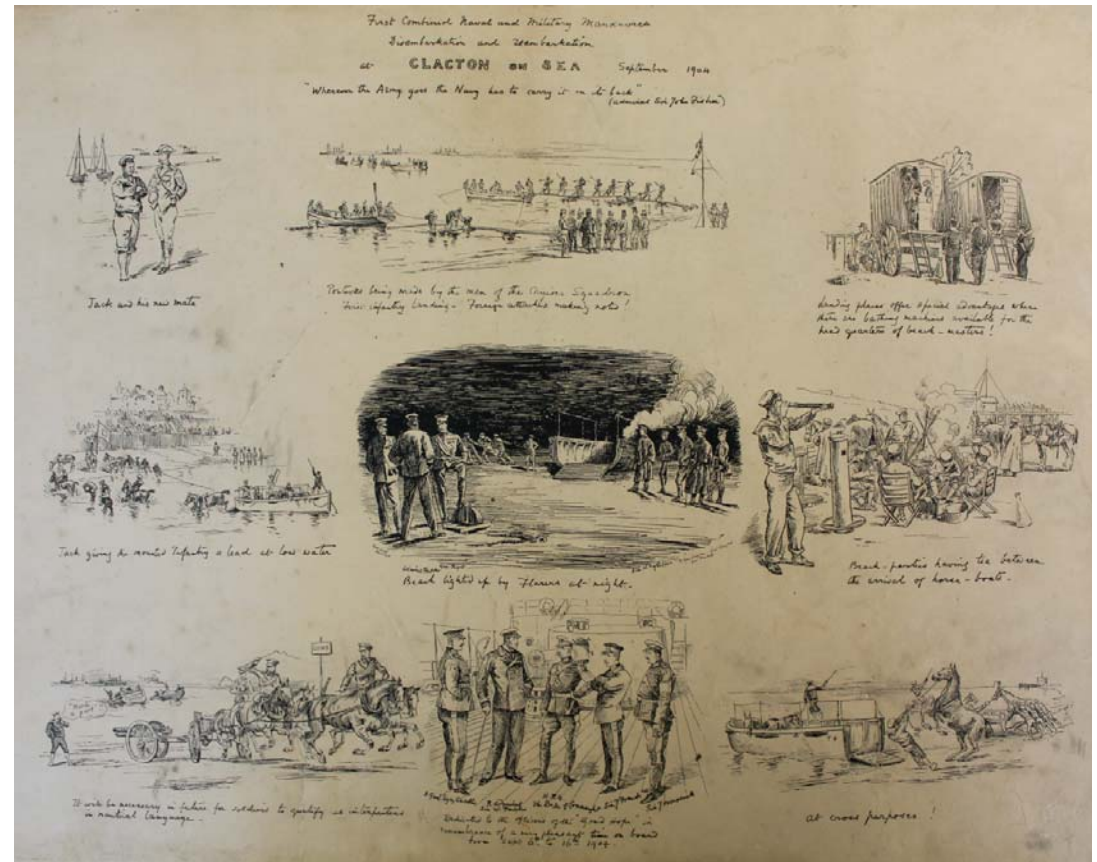 First Combined Naval and Military Manœuvres
Disembarkation and reembarkation
at CLACTON ON SEA September 1904
"Wherever the Army goes the Navy has to carry it on its back"
(Admiral Sir John Fisher)
Jack and his new mate
Pontoons being made by the men of the Cruiser Squadron
First infantry landing - Foreign attachés making notes!
Landing places offer special advantages when
there are bathing machines available for the
head quarters of beach-masters!
Jack giving the mounted Infantry a lead at low water
Beach lighted up by flares at night.
Beach-parties having tea between
the arrival of horse-boats.
It will be necessary in future for soldiers to qualify as interpreters
in nautical language.
Dedicated to the officers of the "Good Hope" in
remembrance of a very pleasant time on board
from Sept 6th to 16th 1904.
At cross purposes!